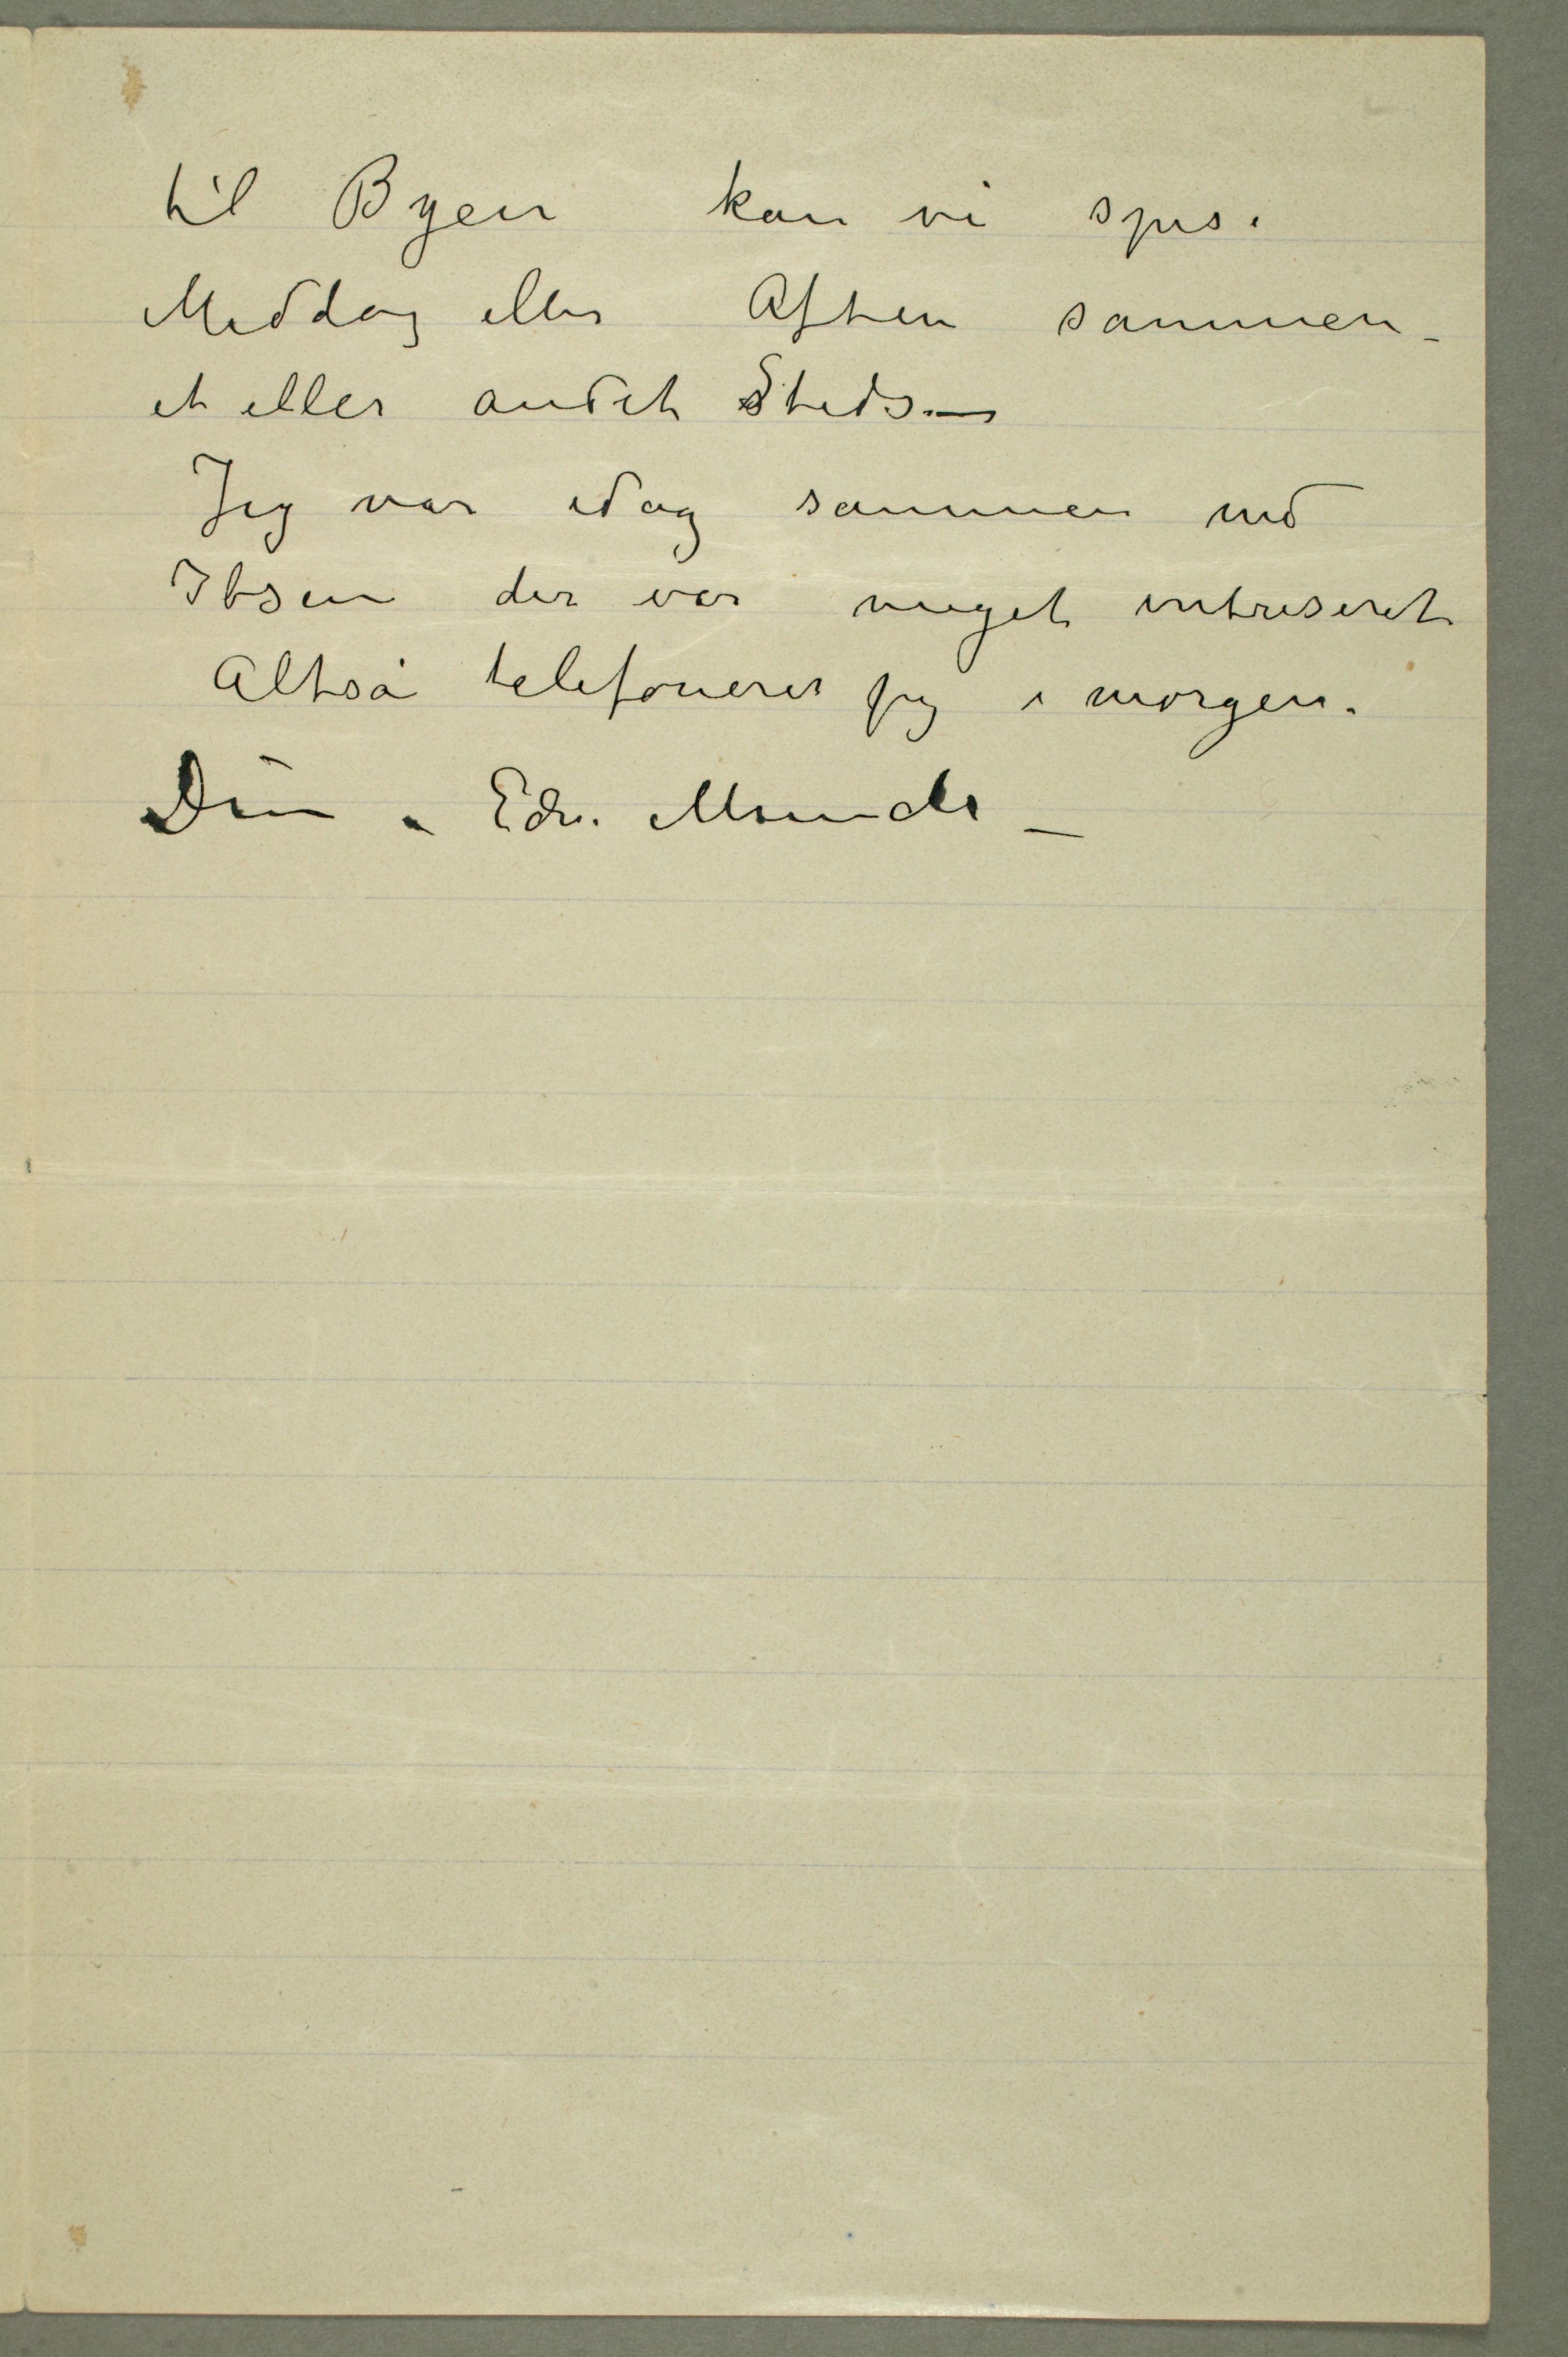 til Byen kan vi spise
Middag eller Aften sammen –
et eller andet Steds. –
Jeg var idag sammen med
Ibsen der var meget intreseret
Altså telefonerer jeg i morgen.
Din . Edv. Munch –